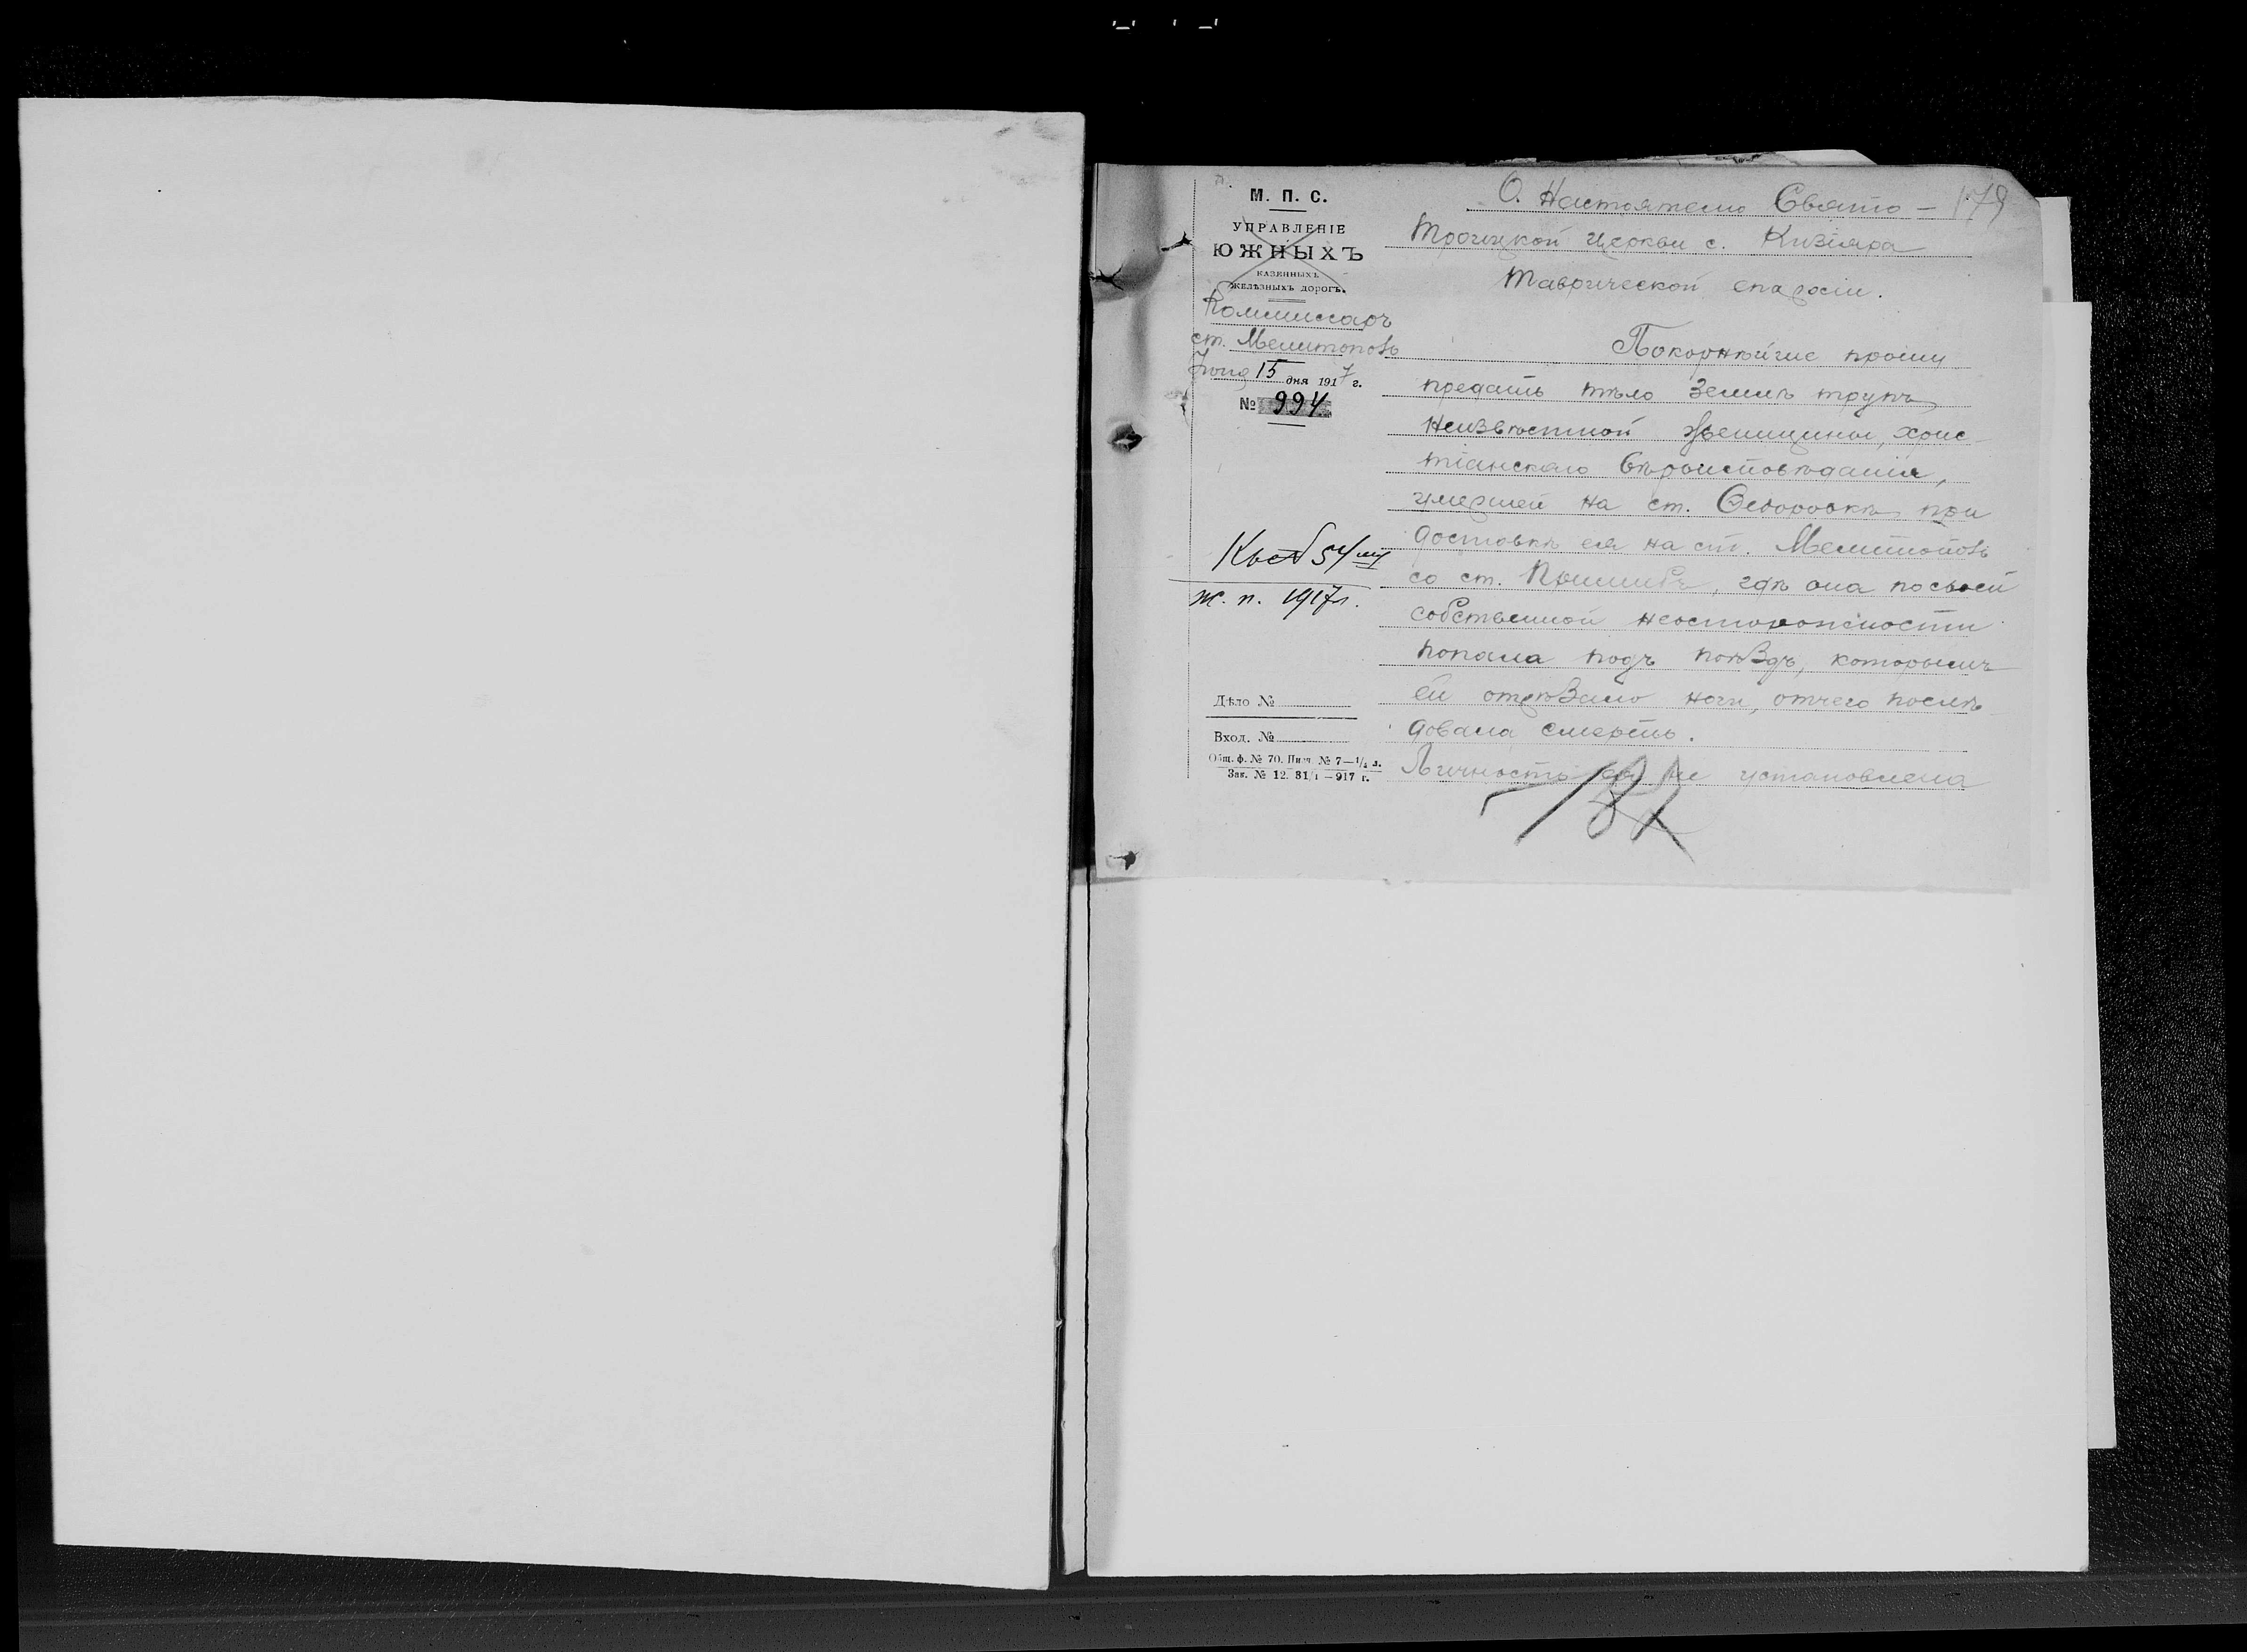 М. П. С.
УПРАВЛЕНІЕ
ЮЖНЫХЪ
КАЗЕННЫХЪ
ЖЕЛѢЗНЫХЪ ДОРОГЪ.
Коммиссаръ
ст. Мелитополь
15 дня 1917 г.
№ 994
Къ ст 54
ж. п. 1917 г.
Дѣло №
Вход. №
Общ. ф. № 70. Пиш. № 7—1/4 л.
Зак. № 12. 31/1—917 г.
179
О. Настоятелю Свято-
Троицкой Церкви с. Кизіяра
Таврической епархіи.
Покорнѣйше прошу
предать тѣло землѣ трупъ
Неизвѣстной женщины, хрис-
тіанскаго вѣроисповѣданія,
умершей на ст. Ѳедоровкѣ при
доставкѣ ея на ст. Мелитополь
со ст. Пришибъ, гдѣ она по своей
собственной неосторожности
попала подъ поѣздъ, которымъ
ей отрѣзало ноги, отчего послѣ-
довала смерть.
Личность ея не установлена